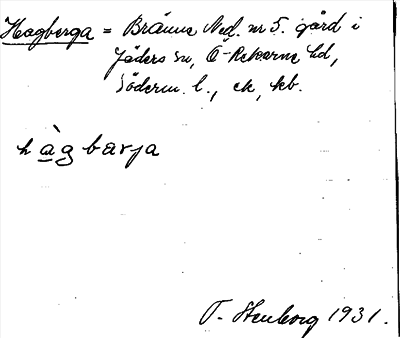 Hagberga = Bränne Ned. nr 5. gård i
Jäders sn, Ö-Rekarne hd,
Söderm. l., ek, kb.
hàgbarja
T. Stenborg 1931.